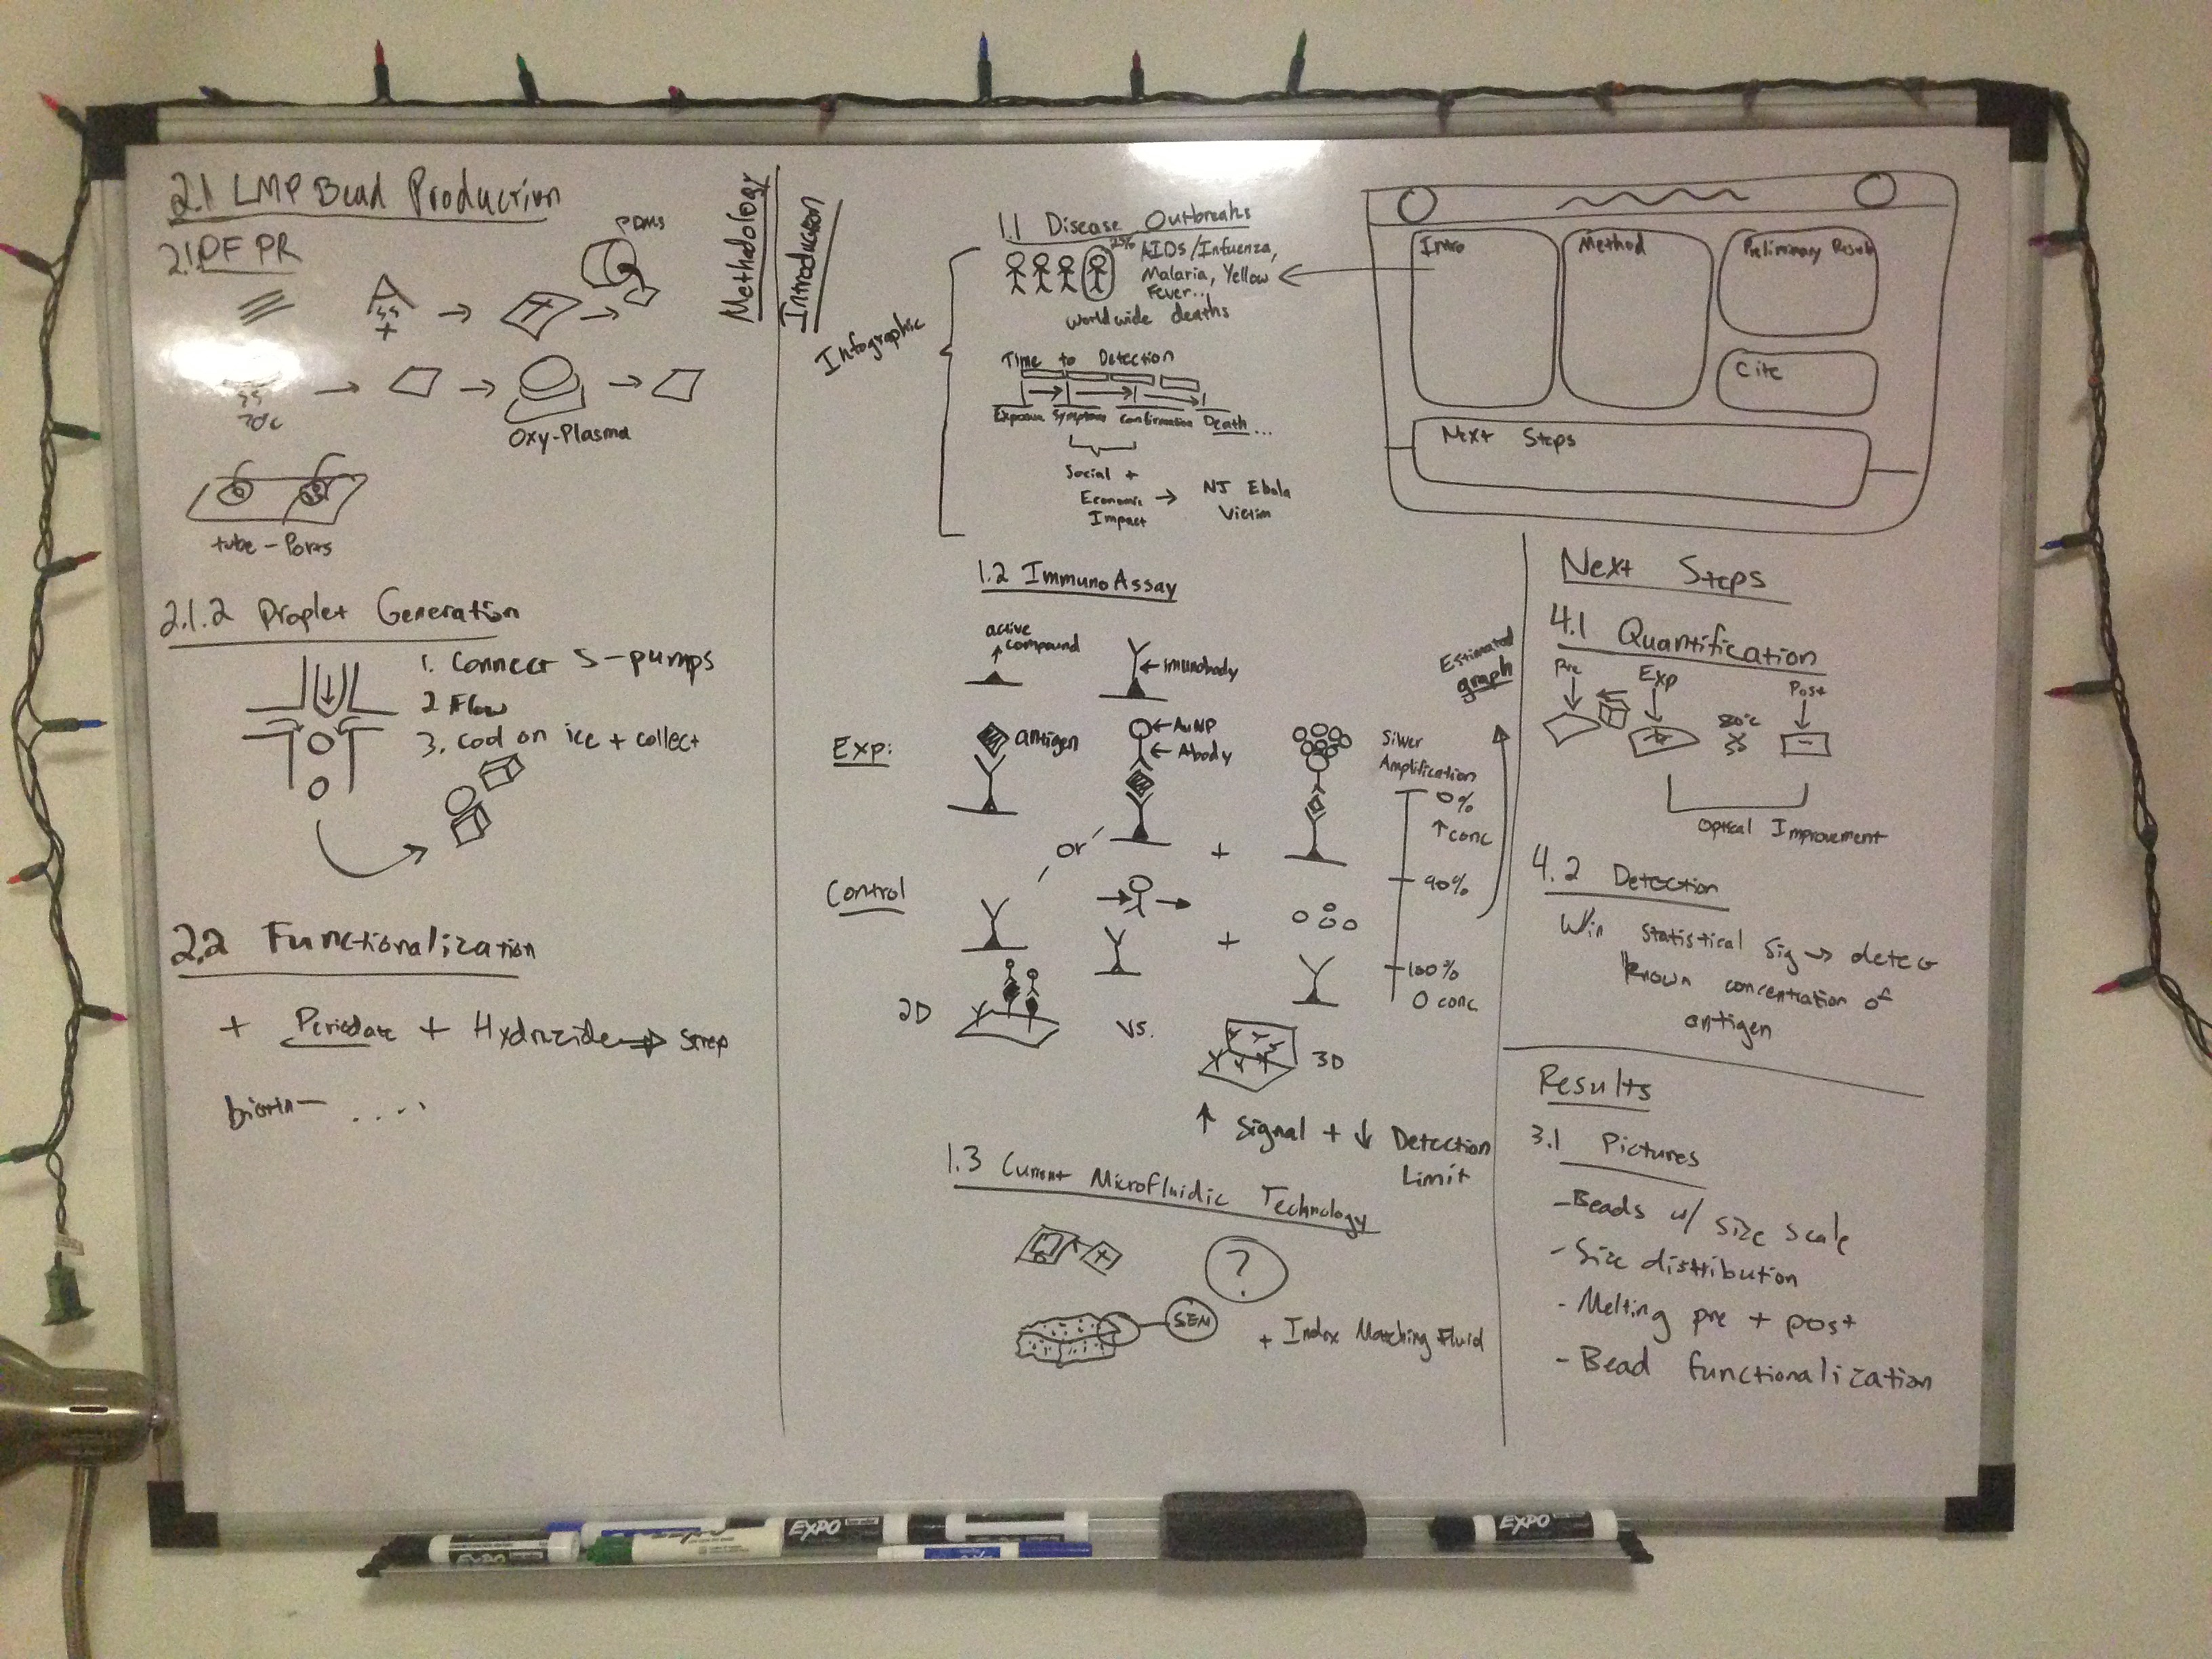 2.1 LMP Bead Production
PDMS
70c
Oxy-Plasma
tube - Ports
2.1.2 Droplet Generation
1. Connect S-pumps
2 Flow
3. cool on ice + collect
2.2 Functionalization
+ Periodate + Hydrazide → Strep
biotin - ....
Methodology
Introduction
Infographic
1.1 Disease Outbreaks
25%
AIDs/Infuenza,
Malaria, Yellow
Fever...
worldwide deaths
Time to Detection
Exposure Symptoms Confirmation Death ...
Social +
Economic →
Impact
NJ Ebola
Victim
1.2 Immuno Assay
active
compound
imunobody
Exp:
antigen
AuNP
Abody
Silver
Amplification
0%
↑ conc
90%
100%
0 conc
Estimated
graph
or
+
Control
+
2D
vs.
3D
↑ Signal + ↓ Detection
Limit
1.3 Current Microfluidic Technology
?
SEM
+ Index Matching Fluid
Intro
Method
Preliminary Result
Cite
Next Steps
Next Steps
4.1 Quantification
Pre
Exp
80°c
Post
Optical Improvement
4.2 Detection
W/in statistical sig → detect
known concentration of
antigen
Results
3.1 Pictures
- Beads w/ size scale
- Size distribution
- Melting pre + post
- Bead functionalization
EXPO
EXPO
EXPO